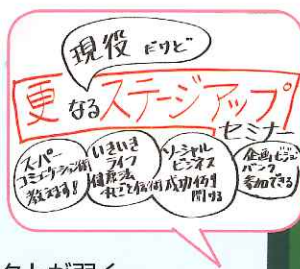 現役だけど
更なるステージアップ
セミナー
スーパー
コミュニケーション術
教えます!
いきいき
ライフ
健康法
丸ごと伝術
ソーシャル
ビジネス
成功例
聞ける
企画ビジョン
バンク
参加できる